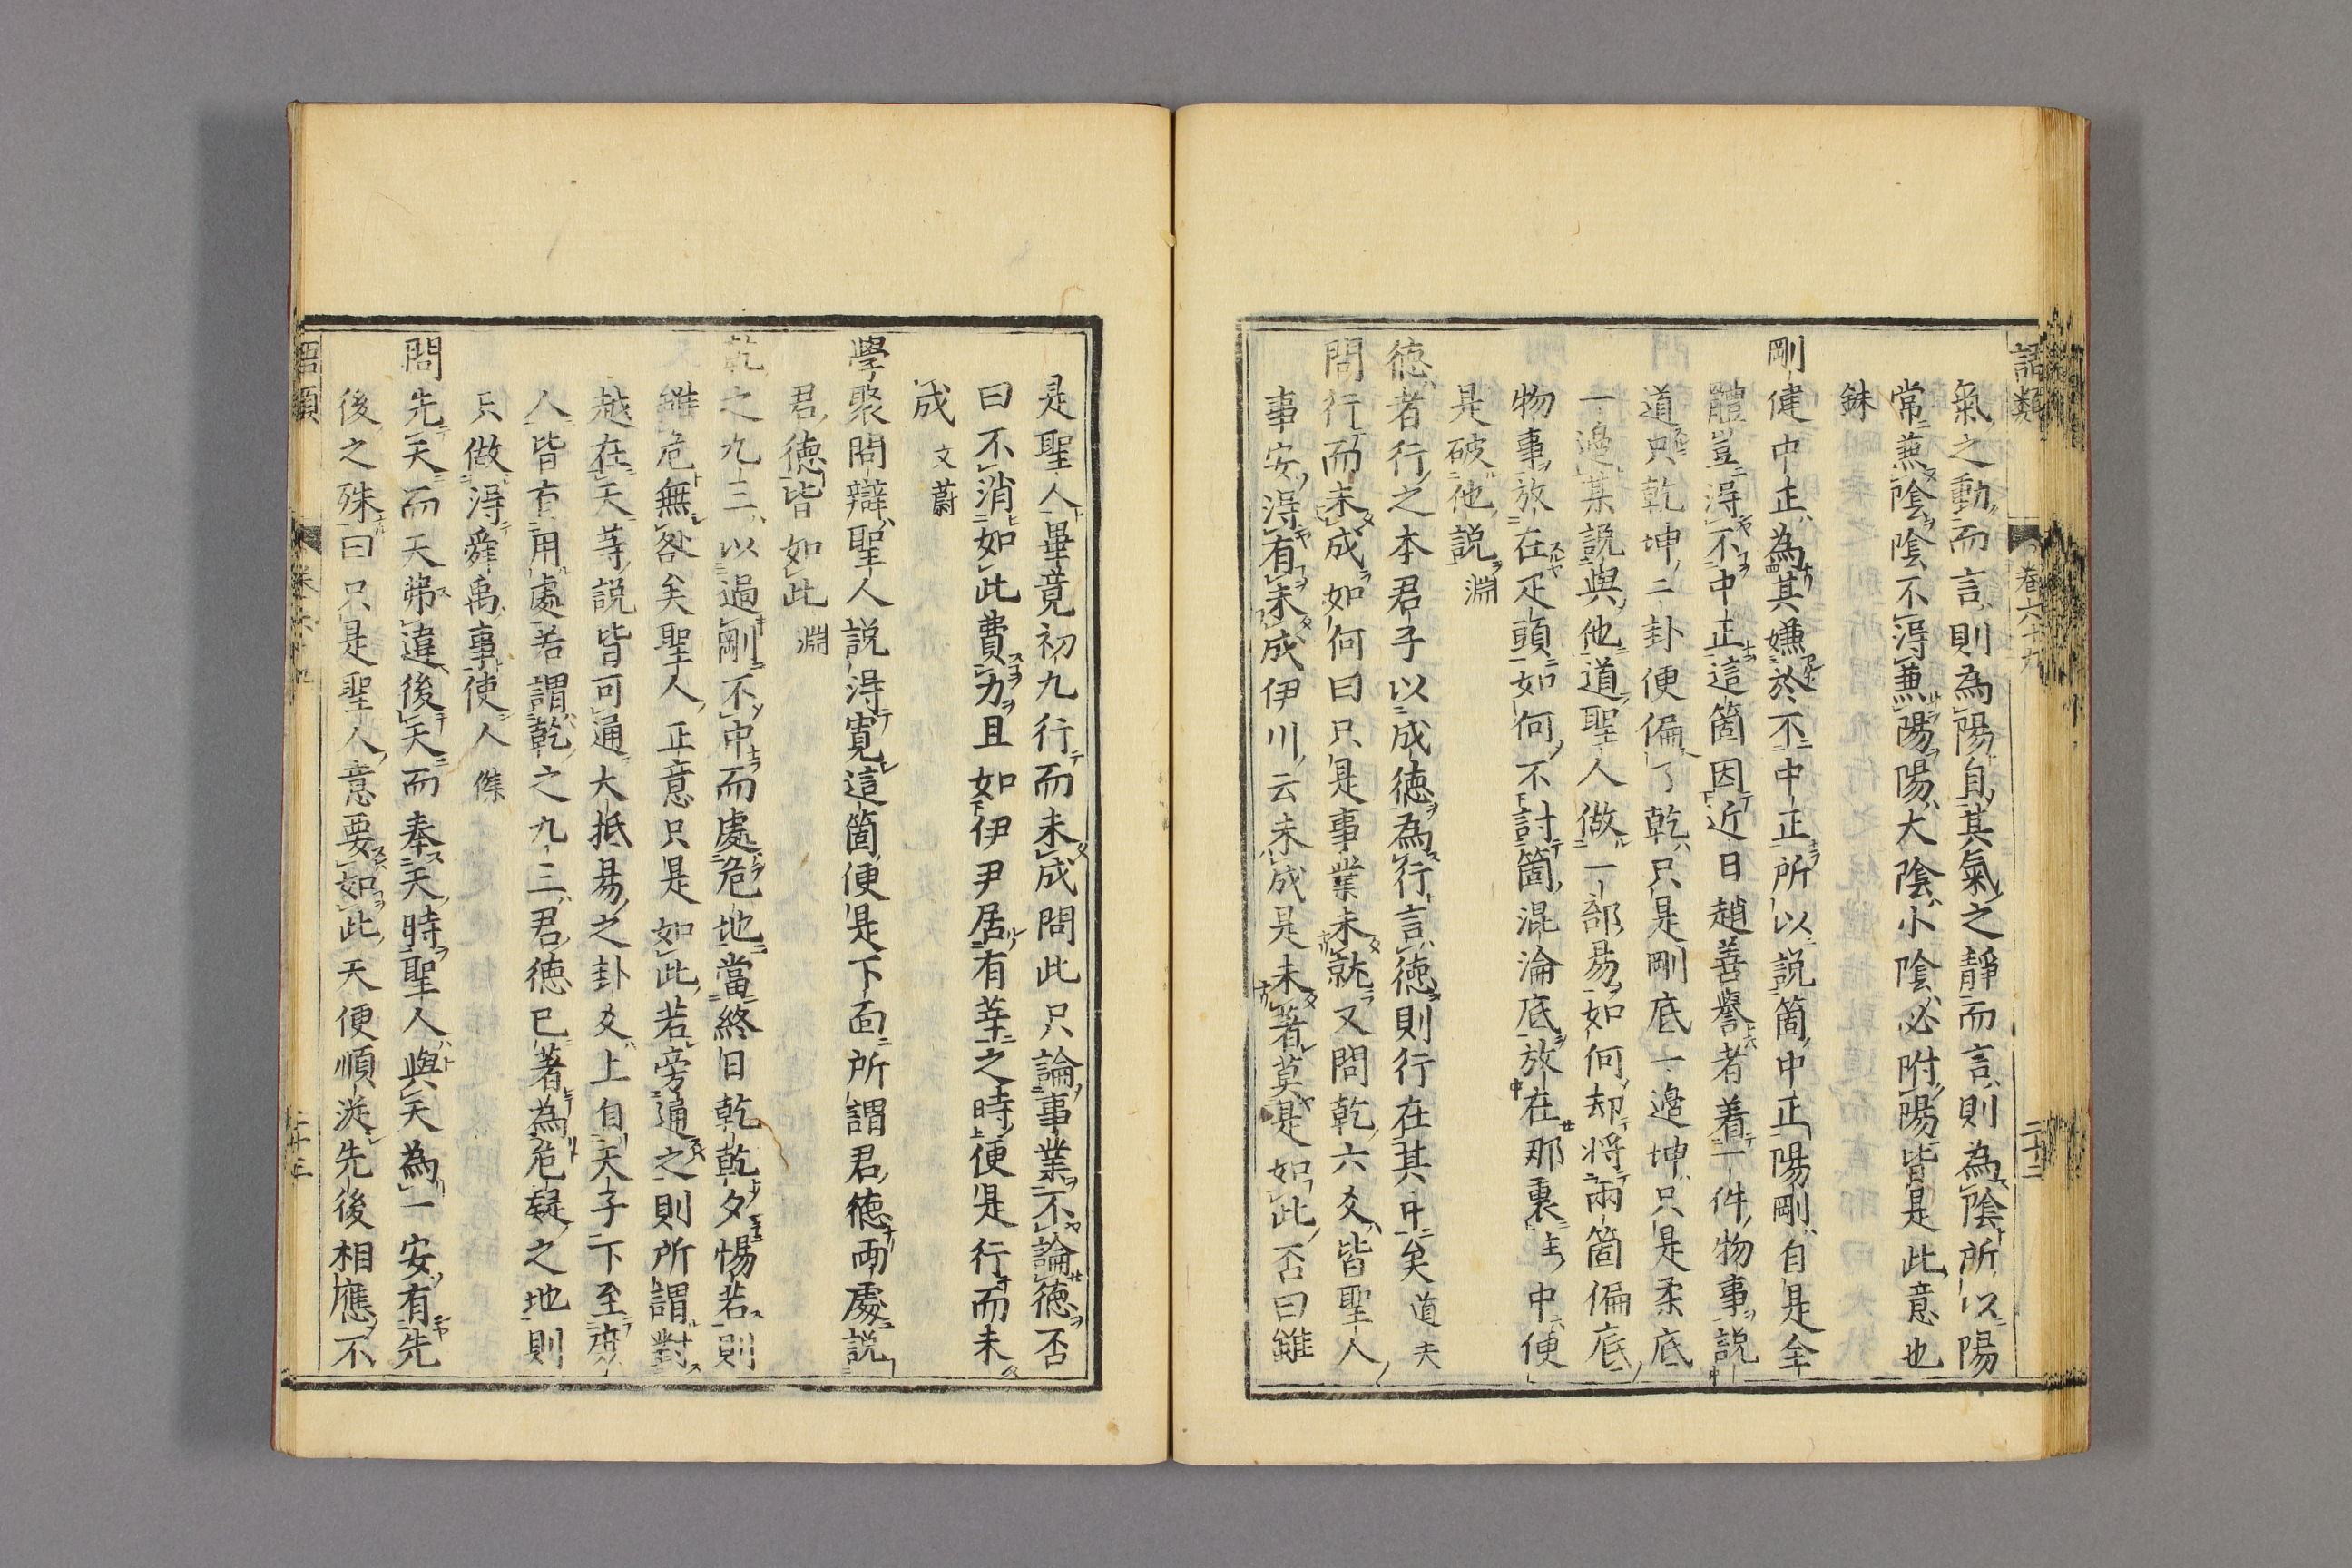 語類 卷六十九 二十二
氣之動而言則為陽自其氣之靜而言則為陰所以陽
常兼陰陰不得兼陽陽大陰小陰必附陽皆是此意也
銖
剛健中正為其嫌於不中正所以説箇中正陽剛自是全
體豈得不中正這箇因近日趙善譽者着一件物事説
道只乾坤二卦便偏了乾只是剛底一邊坤只是柔底
一邊某説與他道聖人做一部易如何却將兩箇偏底
物事放在疋頭如何不討箇混淪底放在那裏註中便
是破他説淵
德者行之本君子以成德為行言德則行在其中矣道夫
問行而未成如何曰只是事業未就又問乾六爻皆聖人
事安得有未成伊川云未成是未著莫是如此否曰雖
是聖人畢竟初九行而未成問此只論事業不論德否
曰不消如此費力且如伊尹居有莘之時便是行而未
成文蔚
學聚問辯聖人説得寬這箇便是下面所謂君德兩處説
君德皆如此淵
乾之九三以過剛不中而處危地當終日乾乾夕惕若則
雖危無咎矣聖人正意只是如此若旁通之則所謂對
越在天等説皆可通大抵易之卦爻上自天子下至庶
人皆有用處若謂乾之九三君德已著為危疑之地則
只做得舜禹事使人傑
問先天而天弗違後天而奉天時聖人與天為一安有先
後之殊曰只是聖人意要如此天便順從先後相應不
語類 卷六十九 二十三